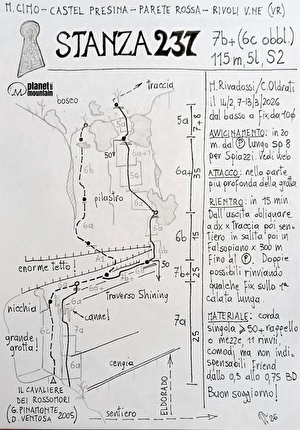 M. CIMO - CASTEL PRESINA - PARETE ROSSA - RIVOLI V.NE (VR)
STANZA 237
7b+ (6c obbl.)
115m, 5l, S2
planet mountain
bosco
traccia
5a
7+8
50m
6a+
35
pilastro
6b
15
6a
enorme tetto
50
7b+
25
Traverso Shining
nicchia
canne!
7a
25
grande grotta!
cengia
IL CAVALIERE
DEI ROSSOMORI
(G. PINAMONTE
D. VENTOSA 2005)
sentiero
ELDORADO
M. Rivadossi / C. Oldrati
il 14/2, 7-13/3/2026
dal basso a fix da 10Φ
AVVICINAMENTO: in 20
m. da P lungo 508
per Spiazzi. Vedi web
ATTACCO: nella parte
più profonda della grotta.
RIENTRO: in 15 min.
Dall'uscita obliquare
a dx x traccia poi sen-
tiero in salita poi in
falsopiano x 300 m
fino al P. Doppie
possibili rinviando
qualche fix sullo 1ª
calata lunga.
MATERIALE: corda
singola ≥50 + rappello
o mezze, 11 rinvii,
comodi ma non indi-
spensabili friend
dallo 0,3 allo 0,75 BD
Buon soggiorno!
26